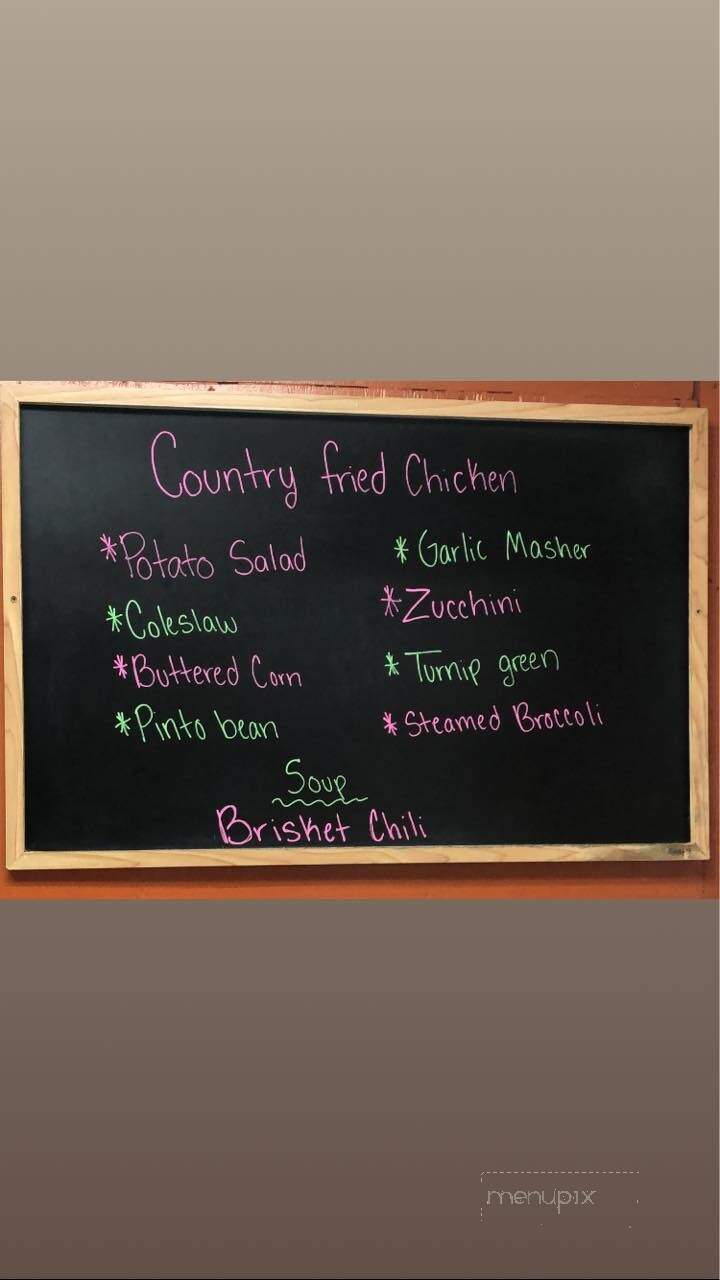 Country fried Chicken
*Potato Salad
*Coleslaw
*Buttered Corn
*Pinto bean
*Garlic Masher
*Zucchini
*Turnip green
*Steamed Broccoli
Soup
Brisket Chili
menupix